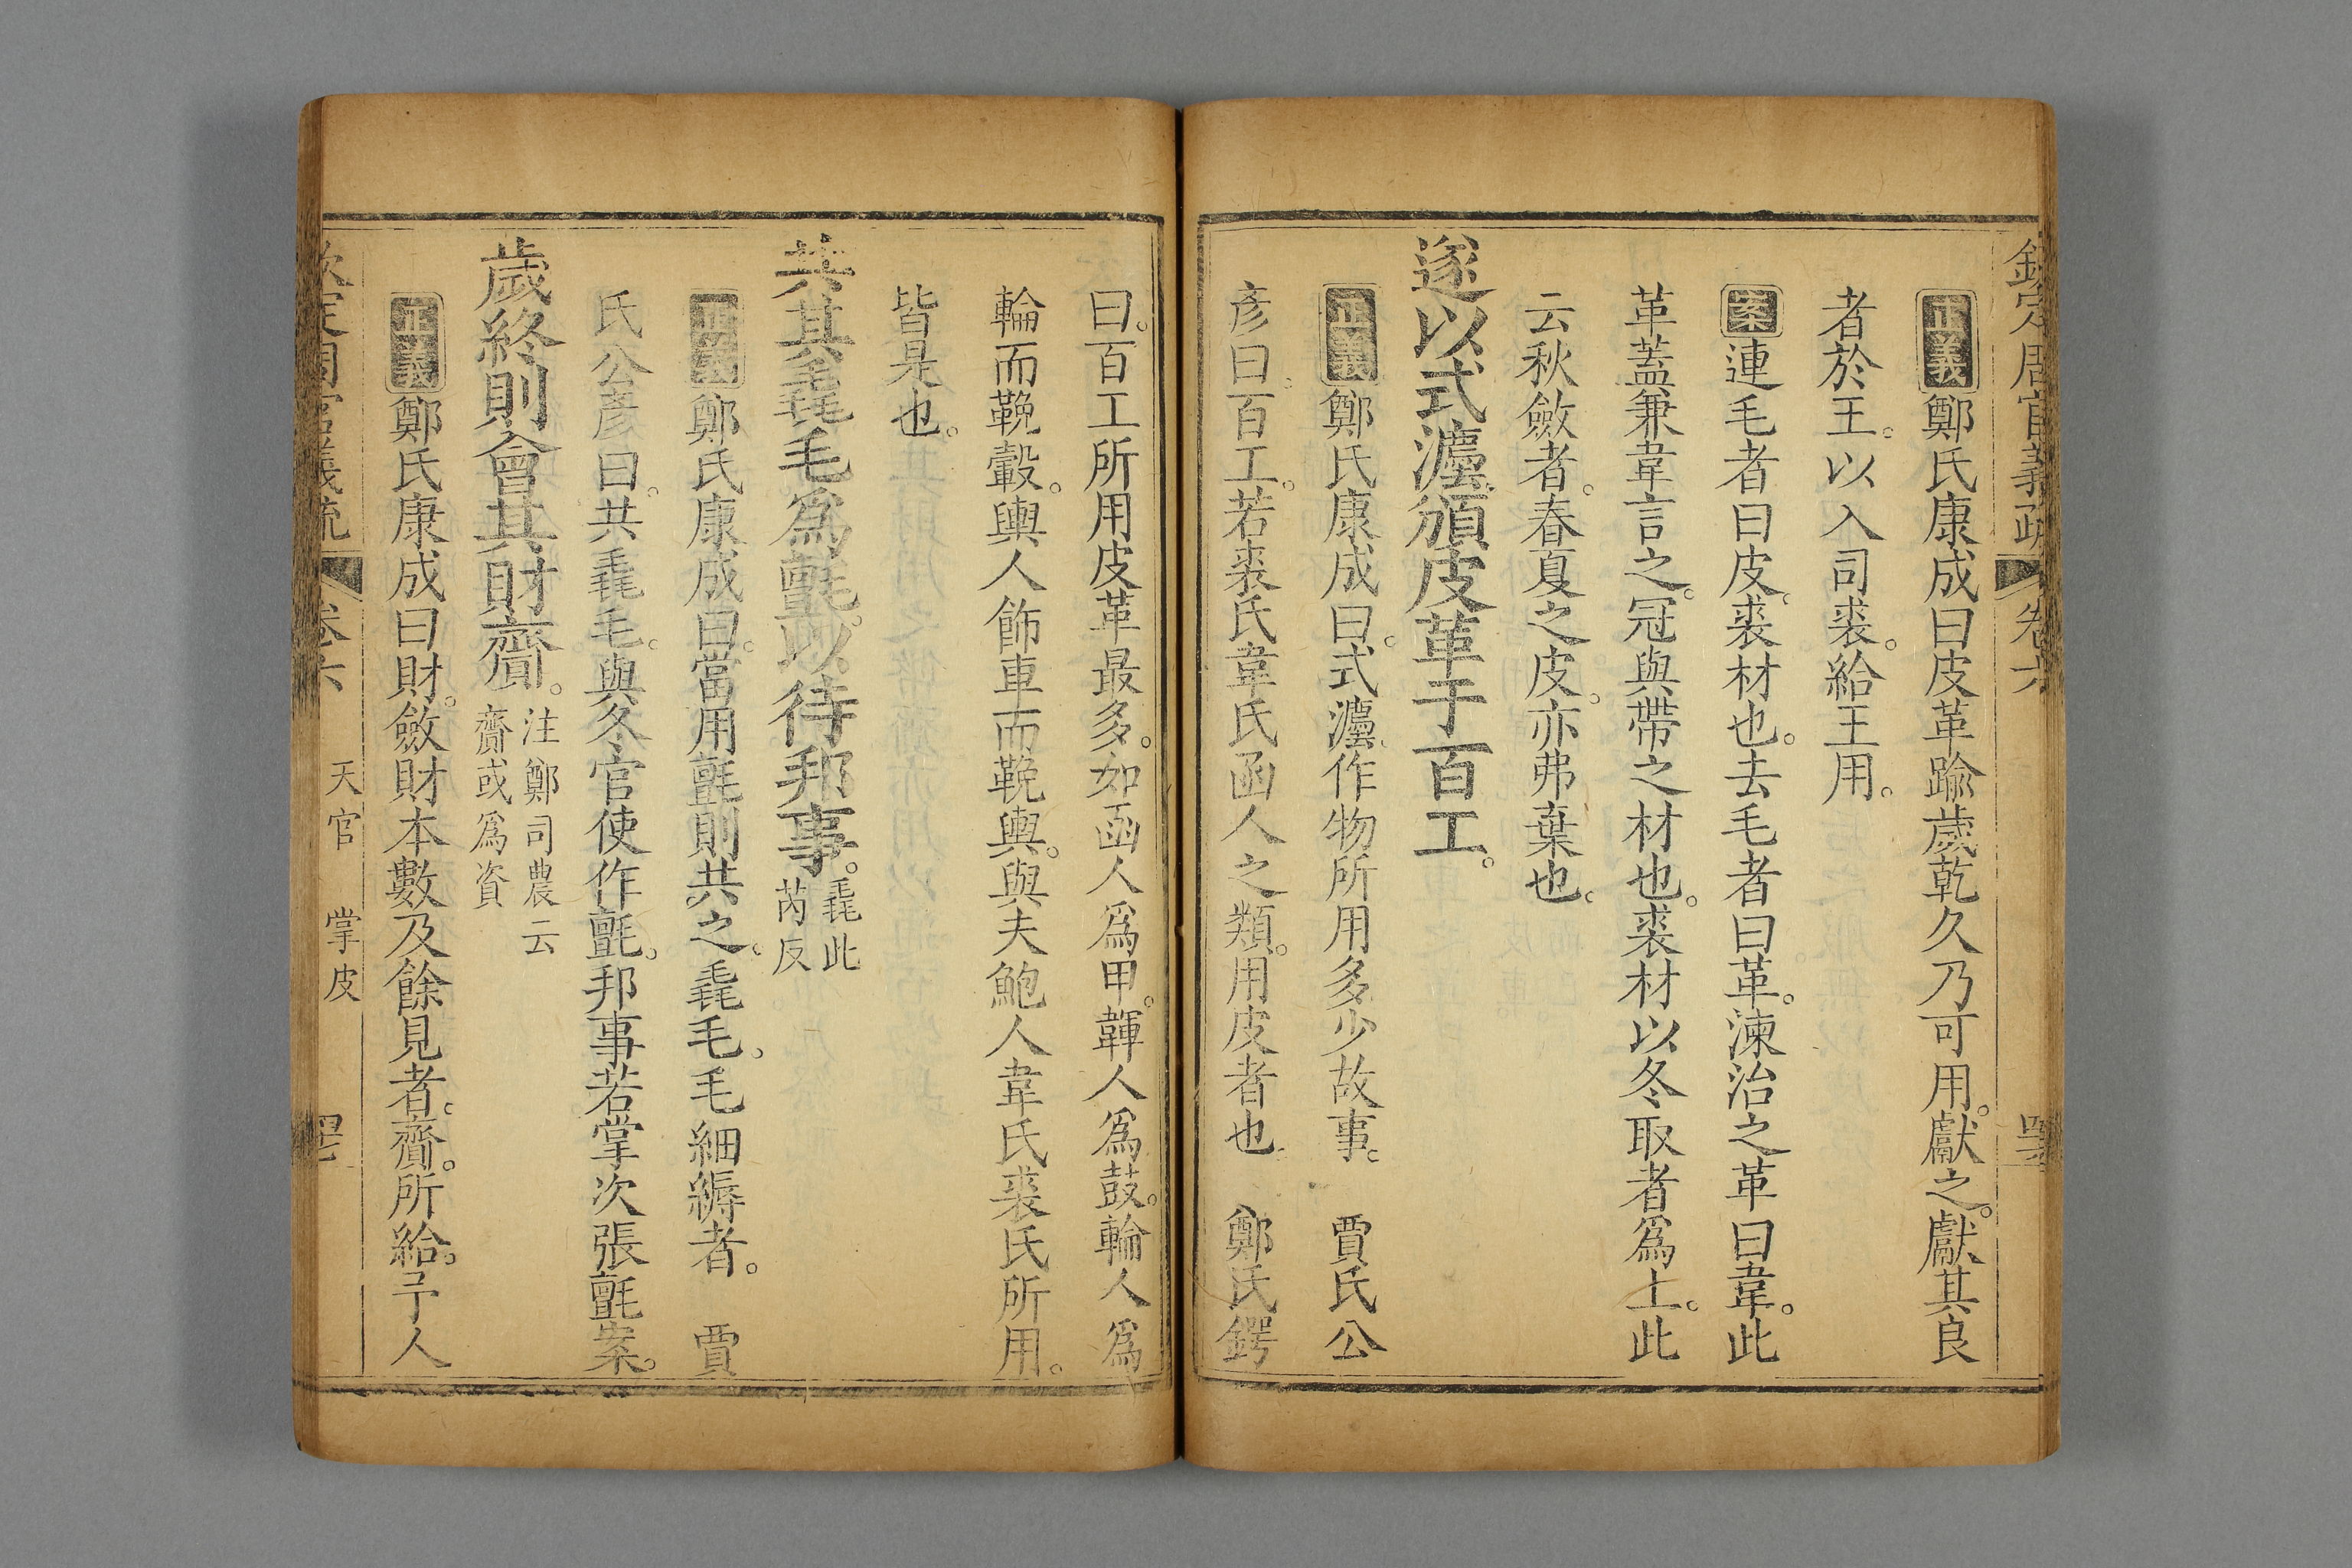 欽定周官義疏 卷六
正義 鄭氏康成曰皮革踰歲乾久乃可用。獻之。獻其良
者於王。以入司裘。給王用。
案 連毛者曰皮。裘材也。去毛者曰革。湅治之革曰韋。此
革蓋兼韋言之。冠與帶之材也。裘材以冬取者爲上。此
云秋斂者。春夏之皮。亦弗棄也。
遂以式灋頒皮革于百工。
正義 鄭氏康成曰。式灋。作物所用多少故事。 賈氏公
彥曰。百工。若裘氏韋氏函人之類。用皮者也。 鄭氏鍔
曰。百工所用皮革最多。如函人爲甲。韗人爲鼓。輪人爲
輪而鞔轂。輿人飾車而鞔輿。與夫鮑人韋氏裘氏所用。
皆是也。
共其毳毛爲氈。以待邦事。毳此芮反
正義 鄭氏康成曰。當用氈則共之。毳毛。毛細縟者。 賈
氏公彥曰。共毳毛。與冬官使作氈。邦事若掌次張氈案。
歲終則會其財齎。注鄭司農云齎或爲資
正義 鄭氏康成曰財。斂財本數及餘見者。齎。所給。予人
欽定周官義疏 卷六 天官 掌皮